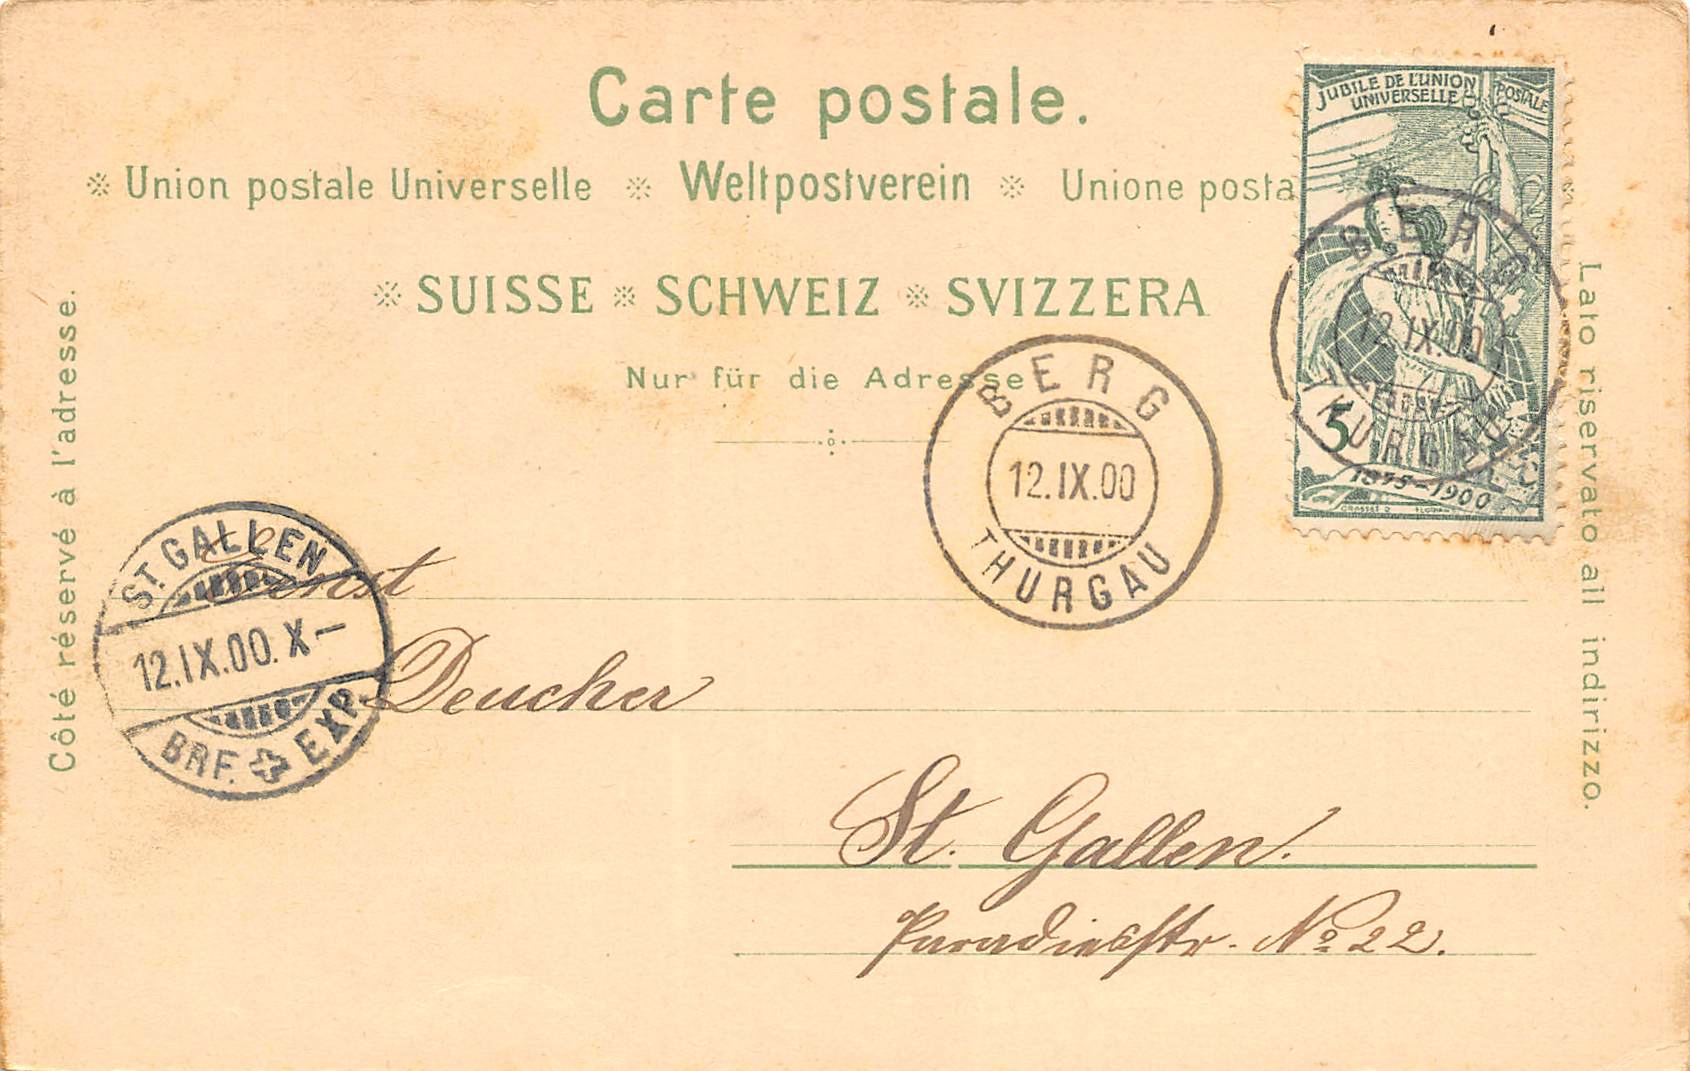 Carte postale.
※ Union postale Universelle ※ Weltpostverein ※ Unione posta
※ SUISSE ※ SCHWEIZ ※ SVIZZERA
Nur für die Adresse
Côté réservé à l'adresse.
Lato riservato all indirizzo.
JUBILÉ DE L'UNION POSTALE
UNIVERSELLE
5
1875-1900
BERG
12.IX.00
THURGAU
BERG
12.IX.00
THURGAU
ST. GALLEN
12.IX.00. X-
BRF. EXP.
Ernst
Deucher
St. Gallen.
Paradiesstr. No 22.